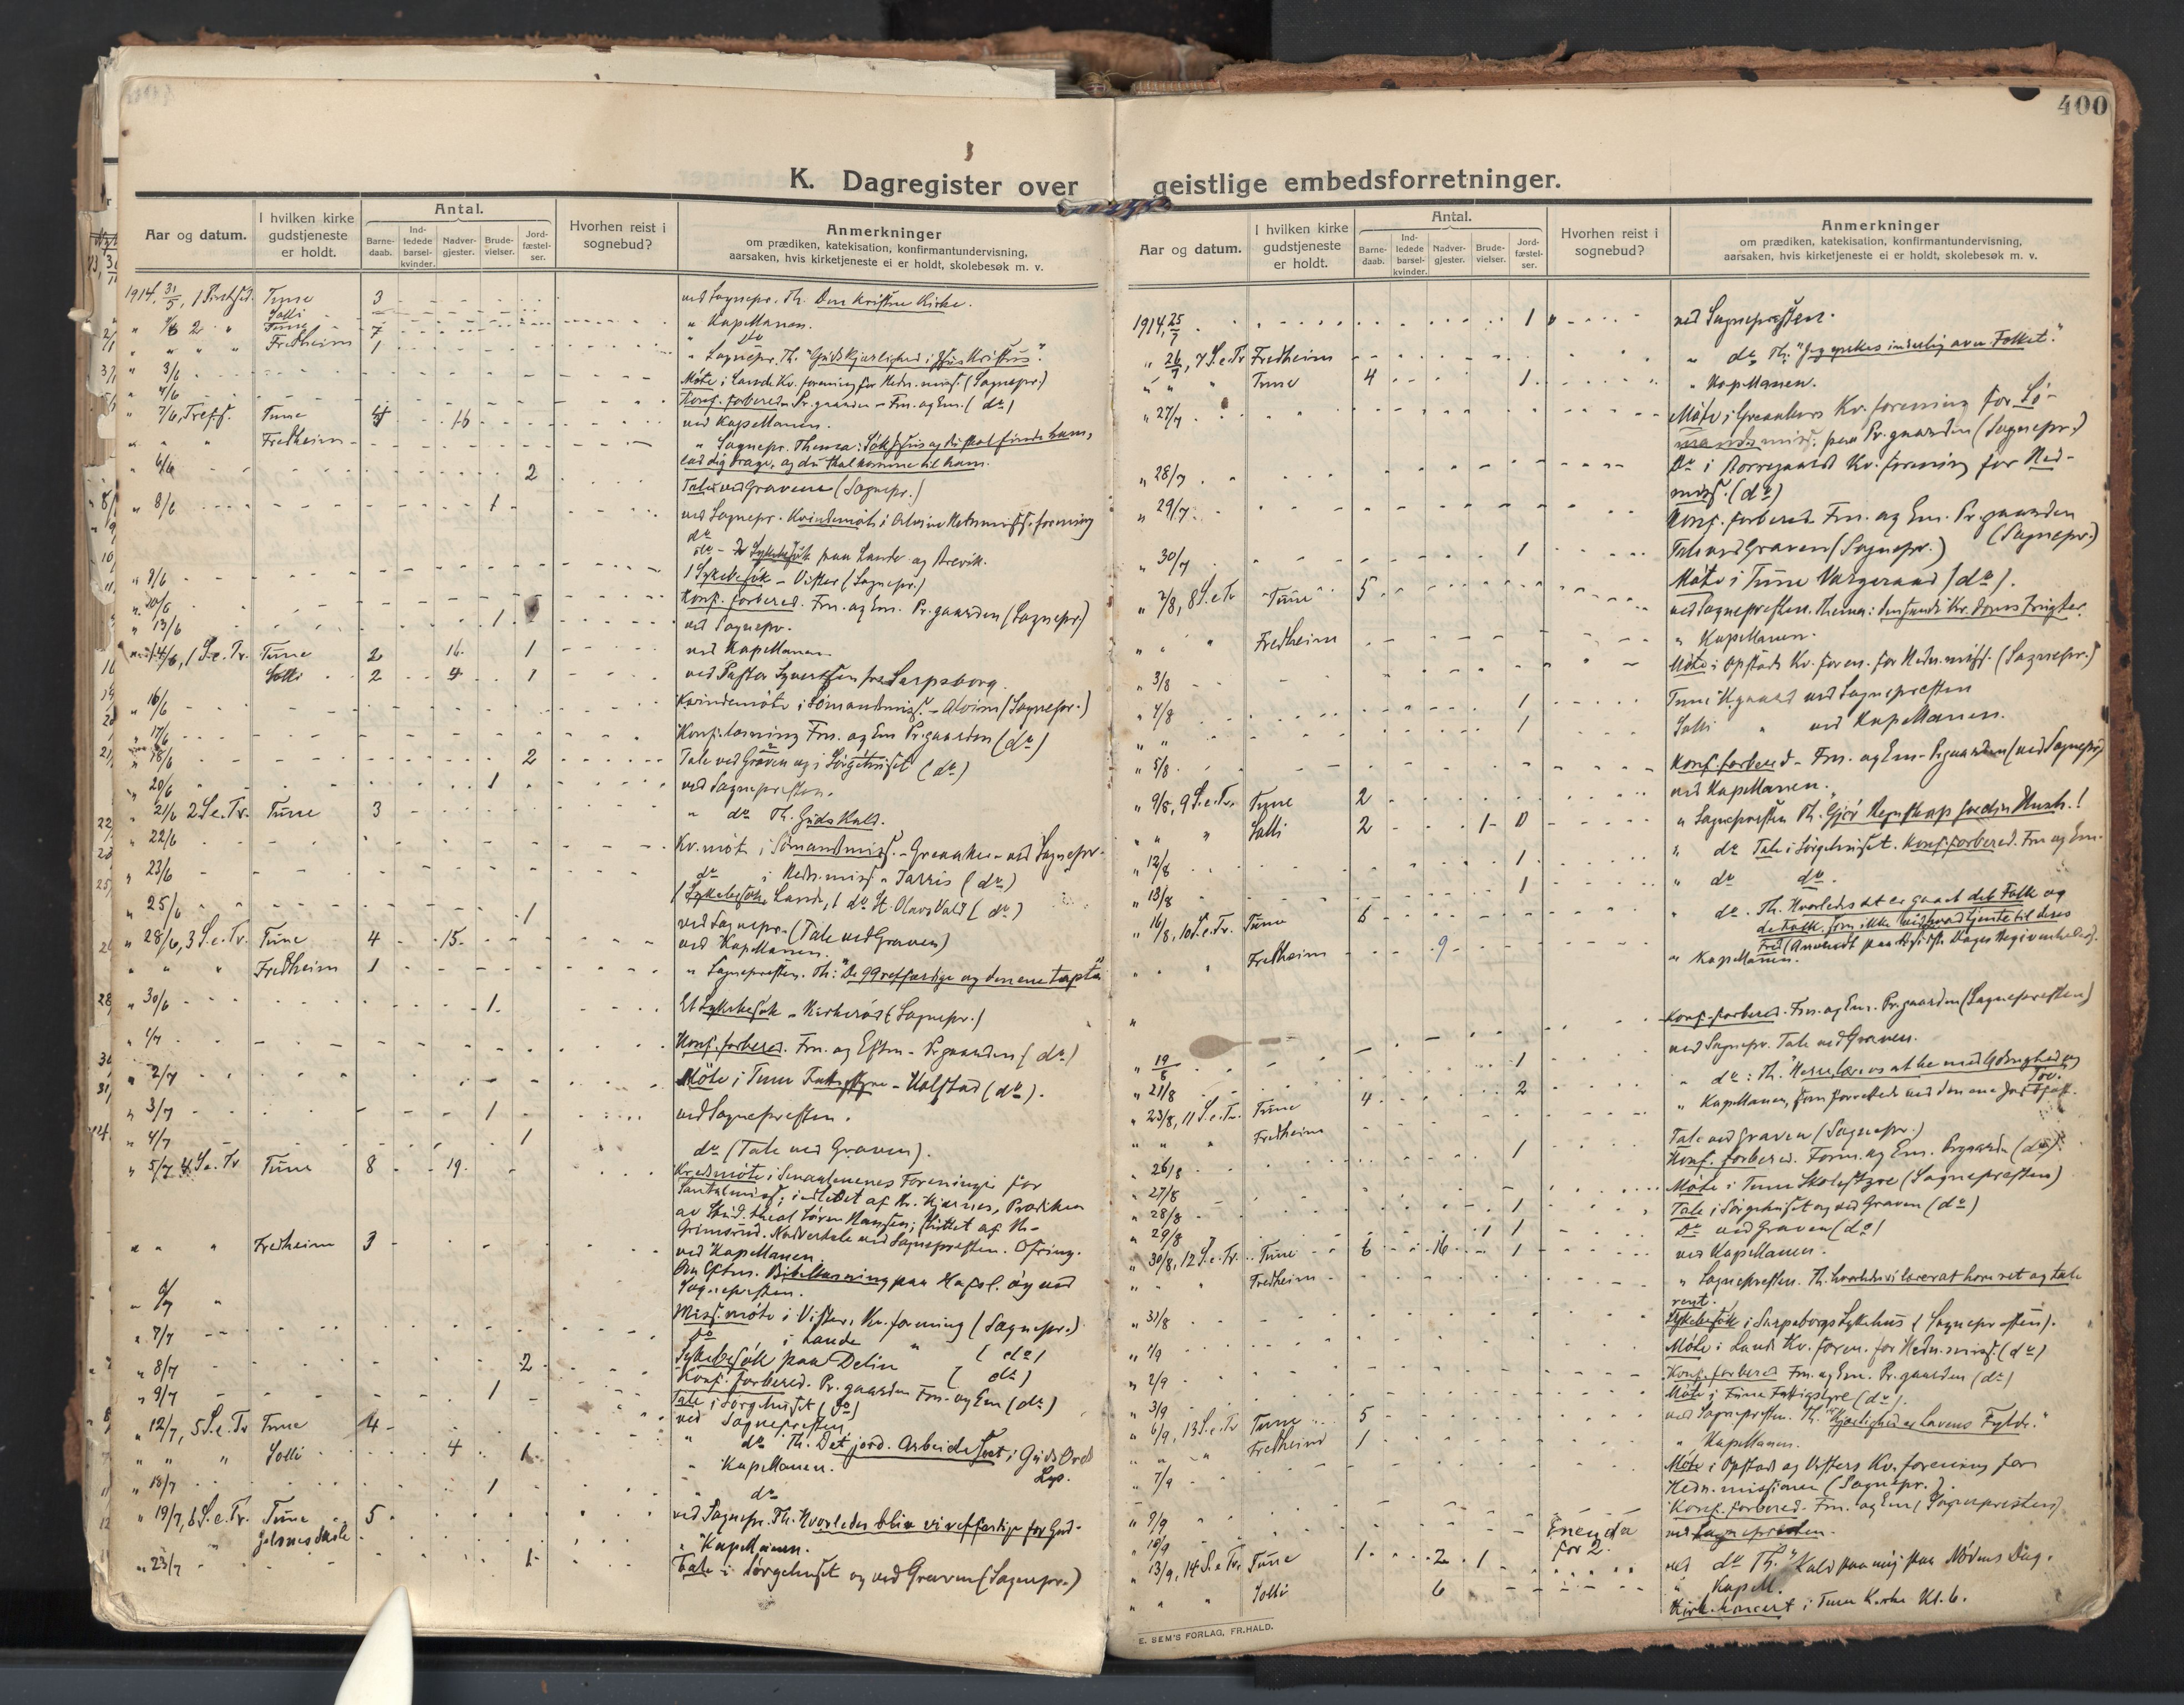 400
K. Dagregister over geistlige embedsforretninger.
Aar og datum.
I hvilken kirke gudstjeneste er holdt.
Antal.
Barne-daab.
Ind-ledede barsel-kvinder.
Nadver-gjester.
Brude-vielser.
Jord-fæstel-ser.
Hvorhen reist i sognebud?
Anmerkninger
om prædiken, katekisation, konfirmantundervisning,
aarsaken, hvis kirketjeneste ei er holdt, skolebesøk m. v.
1914, 31/5, Tune 3 ved Sognepr. Th. Den kristne Kirke.
Solli
Tune 7 " Kapellanen.
Fredheim 1 " Sognepr. Th. "Guds Kjærlighed i Jesus Kristus".
" 3/6 Møte i Lande Kv. forening for Hedn. miss. (Sognepr.)
" 4/6 Konf. forbered. Pr. gaarden - Fm. og Em. (do)
" 7/6, Tref. Tune 16 ved Kapellanen.
" " " Fredheim " Sognepr. Thema: Søk Jesus og du skal finde ham,
lad dig drage, og du skal komme til ham.
" 6/6 2 Tale ved Gravene (Sognepr.)
" 8/6 1 ved Sognepr. Kvindemøte i Alvim Hedn.miss. forening
do - Sykebesøk paa Lande og Brevik.
" 9/6 1 Sykebesøk - Vister (Sognepr.)
" 10/6 Konf. forbered. Fm. og Em. Pr. gaarden (Sognepr)
" 13/6 1 ved Sognepr.
" 14/6, 1 S.e.Tr. Tune 2 16 1 ved Kapellanen
Solli 2 4 1 ved Pastor Syvertsen fra Sarpsborg.
" 16/6 Kvindemøte i Sømandsmiss. - Alvim (Sognepr.)
" 17/6 Konf. læsning Fm. og Em Pr. gaarden (do)
" 18/6 2 Tale ved Graven og i Sørgehuset (do)
" 20/6 1 ved Sognepresten.
" 21/6 2 S.e.Tr. Tune 3 " do Th. Guds Kald.
" 22/6 Kv. møte i Sømandsmiss. - Greaaker - ved Sognepr.
" 23/6 do i Hedn. miss - Tarris (do)
1 Sykebesøk Lande, 1 do St. Olavs Vold (do)
" 25/6 1 ved Sognepr. (Tale ved Graven)
" 28/6, 3 S.e.Tr. Tune 4 15 ved Kapellanen.
" " " Fredheim 1 " Sognepresten. Th: "De 99 retfærdige og den ene tapte
" 30/6 1 Et Sykebesøk - Kirkerød (Sognepr.)
" 1/7 Konf. forbered. Fm. og Eftm - Prgaarden (do)
" 2/7 Møte i Tune Fattigstyre - Kalstad (do).
" 3/7 1 ved Sognepresten.
" 4/7 1 do (Tale ved Graven).
" 5/7 4 S.e.Tr Tune 8 19 Kredsmøte i Smaalenenes Foreninger for
Santalmiss; indledet af Pr. Hjermes, Prædiken
av Stud. theol Søren Hansen; sluttet af
Grimsrud. Nadvertale ved Sognepresten. Ofring.
" " " Fredheim 3 ved Kapellanen
Om Eftm. Bibellæsning paa Hafsl. øy ved
Sognepresten.
" 6/7 Miss. møte i Vister, Kv. forening (Sognepr.)
" 7/7 do i Lande " (do)
" 8/7 2 Sykebesøk paa Delin (do)
" 9/7 1 Konf. forbered. Pr. gaarden Fm. og Em (do)
Tale i Sørgehuset (do)
ved Sognepresten
" 12/7, 5 S.e.Tr Tune 4 " do Th. Det jord. Arbeide set i Guds Ords
Lys.
" " " Solli 4 1 " Kapellanen.
" 18/7 1 " do
" 19/7, 6 S.e.Tr. Tune 5 ved Sognepr. Th. Hvorledes blir vi retfærdige for Gud.
Skole " Kapellanen.
" 23/7 1 Tale i Sørgehuset og ved Graven (Sognepr.)
1914, 25/7 1 ved Sognepresten.
" 26/7, 7 S.e.Tr Fredheim " do, Th: "Jeg ynkes inderlig over Folket".
" " " Tune 4 1 " Kapellanen.
" 27/7 Møte i Greaakers Kv. forening for Sø-
mandsmiss. paa Pr. gaarden (Sognepr.)
" 28/7 Do i Borregaards Kv. forening for Hed-
miss. (do)
" 29/7 Konf. forbered. Fm. og Em. Pr. gaarden
(Sognepr.)
" 30/7 1 Tale ved Graven (Sognepr.)
Møte i Tune Vergeraad (do).
" 2/8, 8 S.e.Tr Tune 5 ved Sognepresten. Thema: Den sunde Kr. doms Frugter.
" " " Fredheim " Kapellanen.
" 3/8 Møte i Opstads Kv. foren. for Hedn. miss. (Sognepr.)
" 4/8 1 Tune K.gaard ved Sognepresten
" " 1 Solli " ved Kapellanen.
" 5/8 Konf. forbered - Fm. og Em. Prgaarden (ved Sognepr)
" 9/8, 9 S.e.Tr. Tune 2 ved Kapellanen.
" " " Solli 2 1 " Sognepresten Th. Gjør Regnskap for din Hush.!
" 12/8 1 " do Tale i Sørgehuset. Konf. forbered. Fm og Em.
" 13/8 1 " do do.
" 16/8, 10 S.e.Tr. Tune 6 " do. Th. Hvorledes det er gaaet det Folk og
de Folk, som ikke vidste hvad tjente til deres
Fred (Anvendt paa de sidste Dages Begivenheder).
" " " Fredheim 9 " Kapellanen.
" Konf. forbered. Fm. og Em. Pr. gaarden (Sognepresten)
" 19/8 1 ved Sognepr. Tale ved Graven.
" 21/8 2 " do: Th. "Herre, lær os at be med Ydmyghed og
Tro."
" 23/8, 11 S.e.Tr. Tune 4 " Kapellanen, som forrettede ved den ene Jordfæst.
" " " Fredheim
" 26/8 1 Tale ved Graven (Sognepr.)
Konf. forbered. Form. og Em. Prgaarden (do).
" 27/8 Møte i Tune Skolestyre (Sognepresten)
" 28/8 1 Tale i Sørgehuset og ved Graven (do)
" 29/8 1 1 Do ved Graven (do)
" 30/8, 12 S.e.Tr. Tune 6 16 1 ved Kapellanen.
" " " Fredheim " Sognepresten. Th. Hvorledes vi lærer at høre ret og tale
rent.
" 31/8 Sykebesøk i Sarpsborgs Sykehus (Sognepresten).
" 1/9 Møte i Lande Kv. foren. for Hedn. miss (do)
" 2/9 Konf. forbered Fm. og Em. Pr. gaarden (do)
" 3/9 Møte i Tune Fattigstyre (do).
" 6/9, 13 S.e.Tr Tune 5 ved Sognepresten. Th. "Kjærlighed er Lovens Fylde."
" " " Fredheim 1 " Kapellanen.
" 7/9 Møte i Opstad og Visters Kv. forening for
Hedn. missionen (Sognepr.).
" 9/9 Konf. forbered. Fm. og Em (Sognepresten)
" 10/9 Enenda for 2. ved Sognepresten.
" 13/9, 14 S.e.Tr. Tune 1 2 1 ved do Th. "Kald paa mig paa Nødens Dag.
" " " Solli 6 " Kapell.
Kirkekoncert i Tune Kirke Kl. 6.
E. SEM'S FORLAG, FR.HALD.